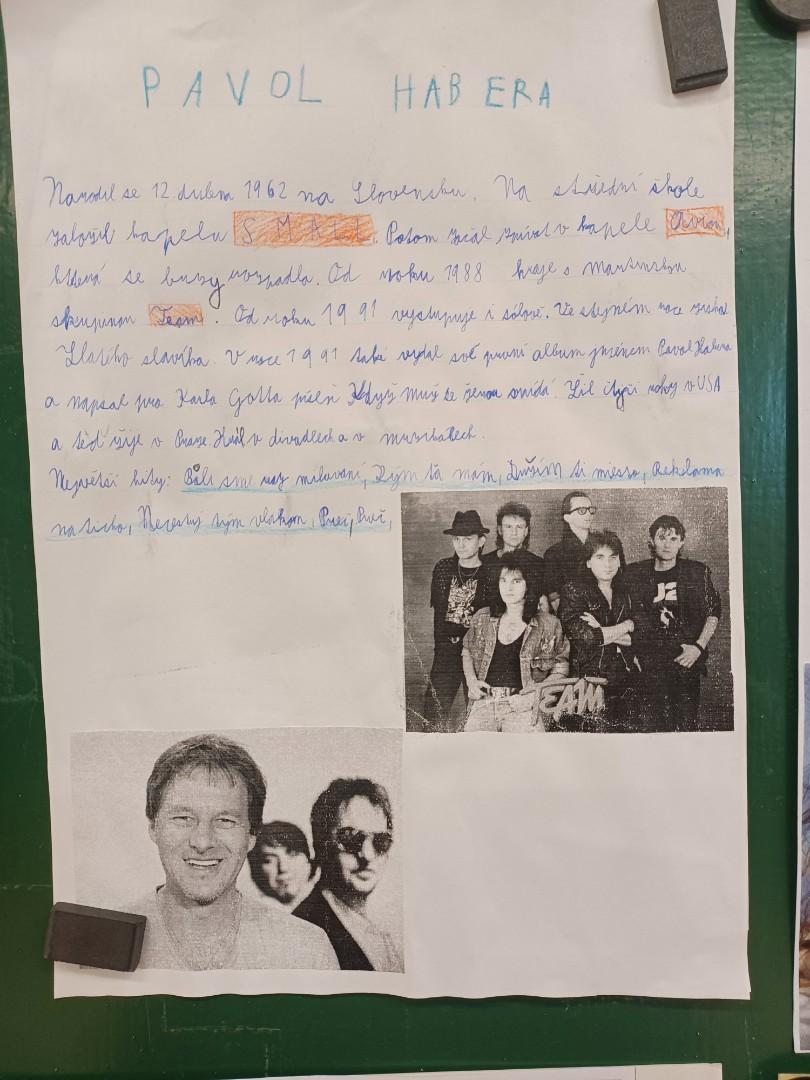 PAVOL HABERA
Narodil se 12 dubna 1962 na Slovensku. Na střední škole
založil kapelu SMALL. Potom začal zpívat v kapele Avion,
která se brzy rozpadla. Od roku 1988 hraje s martinskou
skupinou Team. Od roku 1991 vystupuje i sólově. Ve stejném roce získal
Zlatého slavíka. V roce 1991 také vydal své první album jménem Pavol Habera
a napsal pro Karla Gotta píseň Když muž se ženou snídá. Žil čtyři roky v USA
a teď žije v Praze. Hrál v divadlech a v muzikálech.
Největší hity: Báli sme raz milovaní, Kým ťa mám, Držím ti miesto, Reklama
na ticho, Necestuj tým vlakom, Preč, Preč,
TEAM